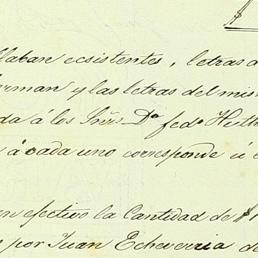 llaban ecsistentes, letras a
rman y las letras del mis
da á los Sres. Dn. fedo.
n á cada uno corresponde ó
n efectivo la Cantidad de $1
por Juan Echeverria de